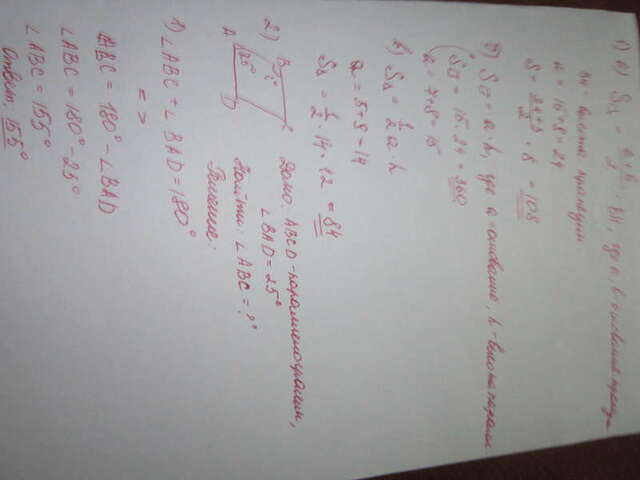 1) а) S = (a+b)/2 · BH, где a, b - основания
BH - высота трапеции
a = 16+8=24
S = · 8 = 108
б) S▱ = a · h, где a - основание, h - высота
S▱ = 15 · 24 = 360
a = 7+8=15
в) S△ = 1/2 a · h
= 14
S△ = 1/2 · 14 · 12 = 84
2) Дано: ABCD - параллелограмм,
∠BAD = 25°
Найти: ∠ABC = ?
Решение:
A
B
C
D
25°
1) ∠ABC + ∠BAD = 180°
=>
∠ABC = 180° - ∠BAD
∠ABC = 180° - 25°
∠ABC = 155°
Ответ: 155°